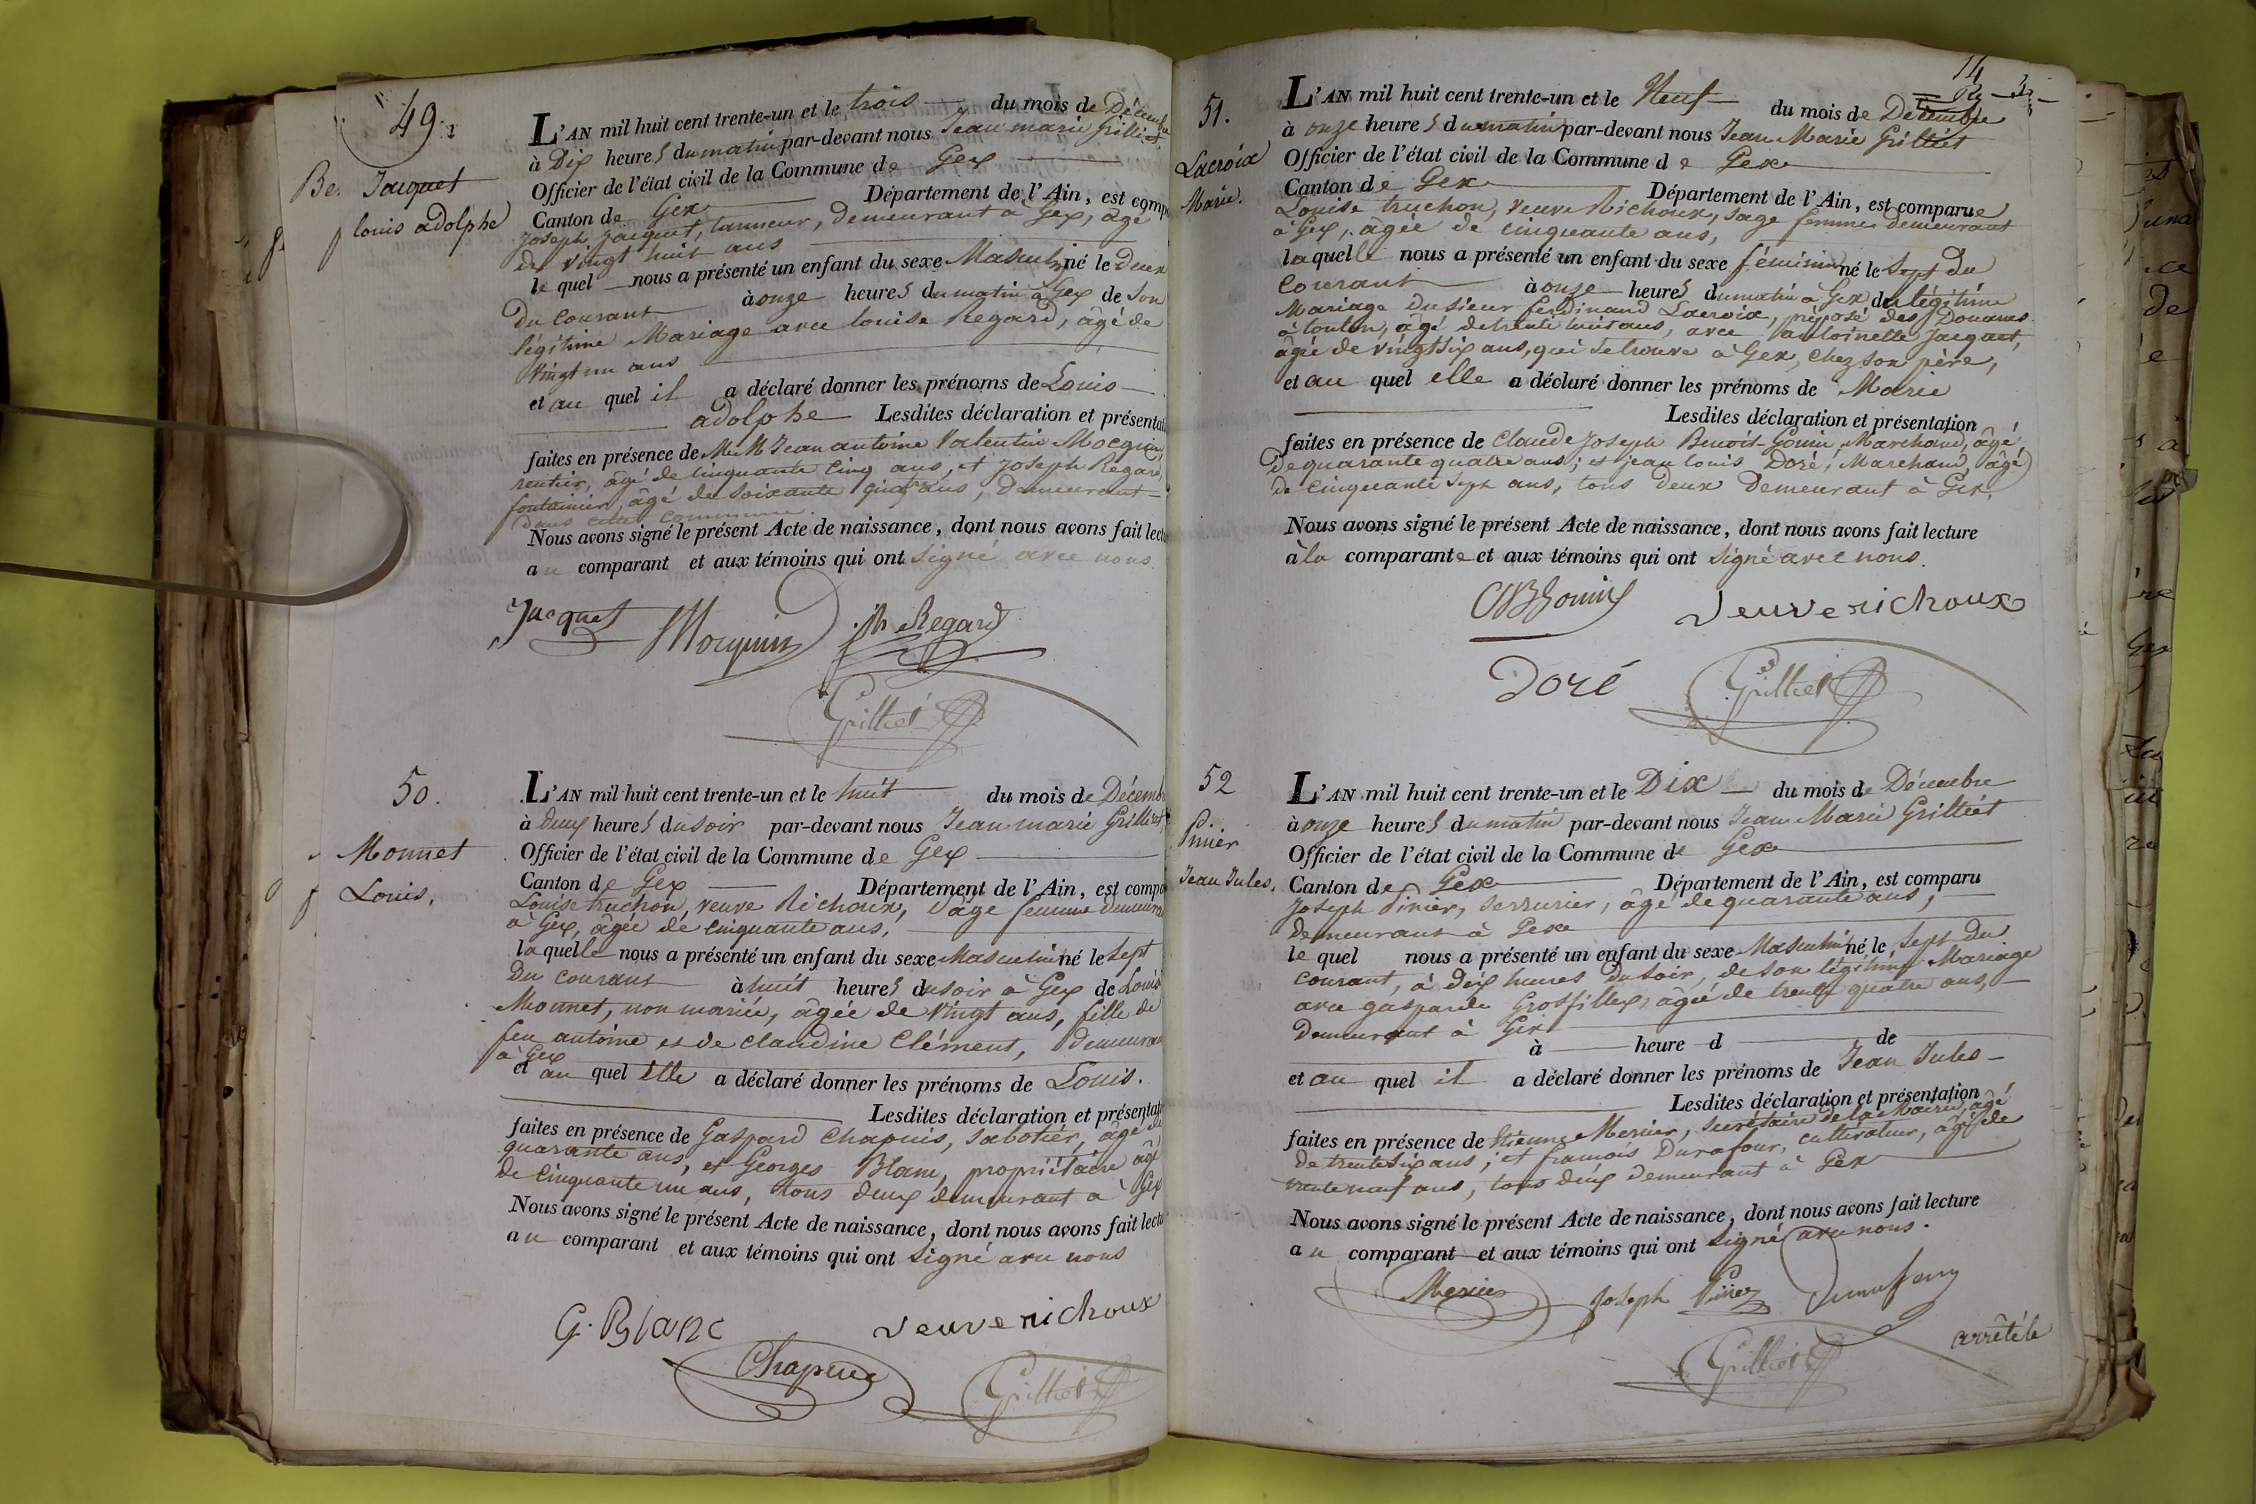 49.
Be. Jacquet
louis adolphe
L'AN mil huit cent trente-un et le trois du mois de Décembre
à Dix heures du matin par-devant nous Jean marie Grilliet
Officier de l'état civil de la Commune de Gex
Canton de Gex Département de l'Ain, est comparu
Joseph Jacquet, tanneur, demeurant à Gex, âgé
de vingt huit ans
le quel nous a présenté un enfant du sexe Masculin né le deux
du courant à onze heures du matin à Gex de son
légitime Mariage avec louise Regard, âgé de
vingt un ans
et au quel il a déclaré donner les prénoms de Louis
adolphe Lesdites déclaration et présentat
faites en présence de MM Jean antoine Valentin Mocquin,
rentier, âgé de cinquante cinq ans, et Joseph Regard,
fontainier, âgé de soixante quatre ans, demeurant
dans cette commune.
Nous avons signé le présent Acte de naissance, dont nous avons fait lectu
au comparant et aux témoins qui ont signé avec nous.
Jacquet Mocquin Regard
Grilliet
50.
Monnet
Louis,
L'AN mil huit cent trente-un et le huit du mois de Décemb
à deux heures du soir par-devant nous Jean marie Grilliet
Officier de l'état civil de la Commune de Gex
Canton de Gex Département de l'Ain, est compa
Louise truchon, veuve Richoux, Sage femme demeurant
à Gex, âgée de cinquante ans,
la quelle nous a présenté un enfant du sexe Masculin né le sept
du courant à huit heures du soir à Gex de Louise
Monnet, non mariée, âgée de vingt ans, fille de
feu antoine et de claudine Clément, demeurant
à Gex
et au quel elle a déclaré donner les prénoms de Louis.
Lesdites déclaration et présentat
faites en présence de Gaspard Chapuis, sabotier, âgé de
quarante ans, et Georges Blanc, propriétaire âgé
de cinquante un ans, tous deux demeurant à Gex
Nous avons signé le présent Acte de naissance, dont nous avons fait lectu
au comparant et aux témoins qui ont signé avec nous
G. Blanc veuve richoux
Chapuis Grilliet
14
51.
Lacroix
Marie.
L'AN mil huit cent trente-un et le Neuf du mois de Décembre
à onze heures du matin par-devant nous Jean Marie Grilliet
Officier de l'état civil de la Commune de Gex
Canton de Gex Département de l'Ain, est comparue
Louise truchon, veuve Richoux, sage femme demeurant
à Gex, âgée de cinquante ans,
laquelle nous a présenté un enfant du sexe féminin né le sept du
courant à onze heures du matin à Gex du légitime
Mariage du sieur ferdinand Lacroix, préposé des Douanes
à toulon, âgé de trente huit ans, avec antoinette Jacquet,
âgée de vingt six ans, qui se trouve à Gex, chez son père,
et au quel elle a déclaré donner les prénoms de Marie
Lesdites déclaration et présentation
faites en présence de Claude Joseph Benoit Gonin, Marchand, âgé
de quarante quatre ans; et jean louis Doré, Marchand, âgé
de cinquante sept ans, tous deux demeurant à Gex.
Nous avons signé le présent Acte de naissance, dont nous avons fait lecture
à la comparante et aux témoins qui ont signé avec nous.
CJBGonin veuve richoux
Doré Grilliet
52
Pinier
Jean Jules.
L'AN mil huit cent trente-un et le Dix du mois de Décembre
à onze heures du matin par-devant nous Jean Marie Grilliet
Officier de l'état civil de la Commune de Gex
Canton de Gex Département de l'Ain, est comparu
Joseph Pinier, serrurier, âgé de quarante ans,
demeurant à Gex
le quel nous a présenté un enfant du sexe Masculin né le sept du
courant, à dix heures du soir, de son légitime Mariage
avec gasparde Grosfillex, âgée de trente quatre ans,
demeurant à Gex
à heure d de
et au quel il a déclaré donner les prénoms de Jean Jules
Lesdites déclaration et présentation
faites en présence de Etienne Mexier, secrétaire de la Mairie, âgé
de trente six ans; et françois Durafour, cultivateur, âgé de
trente neuf ans, tous deux demeurant à Gex
Nous avons signé le présent Acte de naissance, dont nous avons fait lecture
au comparant et aux témoins qui ont signé avec nous.
Mexier Joseph Pinier Durafour
Grilliet
arrêté le